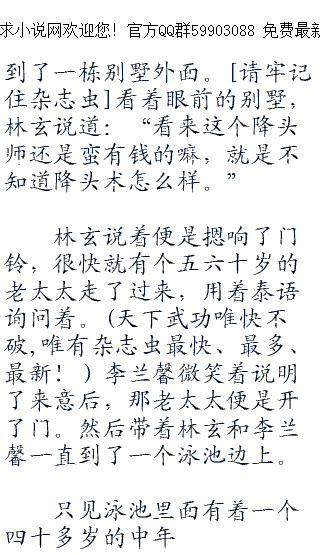 求小说网欢迎您！官方QQ群59903088 免费最新
到了一栋别墅外面。[请牢记
住杂志虫]看着眼前的别墅，
林玄说道：“看来这个降头
师还是蛮有钱的嘛，就是不
知道降头术怎么样。”
林玄说着便是摁响了门
铃，很快就有个五六十岁的
老太太走了过来，用着泰语
询问着。(天下武功唯快不
破,唯有杂志虫最快、最多、
最新！)李兰馨微笑着说明
了来意后，那老太太便是开
了门。然后带着林玄和李兰
馨一直到了一个泳池边上。
只见泳池里面有着一个
四十多岁的中年